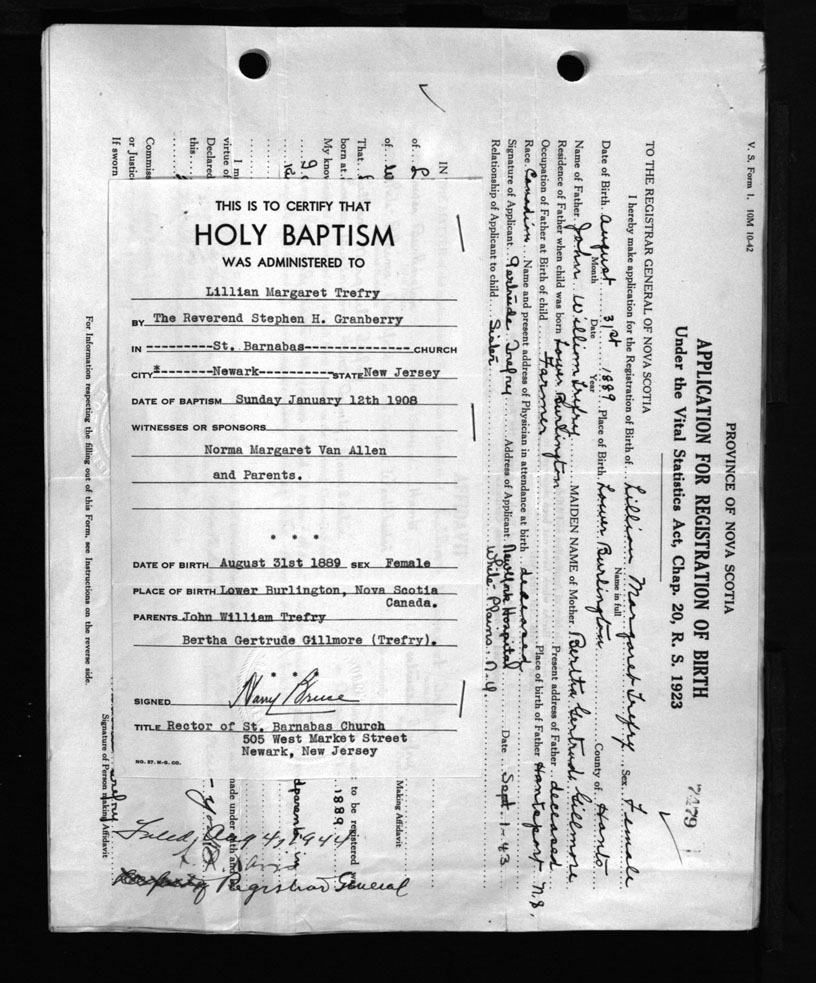 V. S. Form 1. 10M 10-42
PROVINCE OF NOVA SCOTIA
APPLICATION FOR REGISTRATION OF BIRTH
Under the Vital Statistics Act, Chap. 20, R. S. 1923
7479
TO THE REGISTRAR GENERAL OF NOVA SCOTIA
I hereby make application for the Registration of Birth of Lillian Margaret Trefry Sex Female
Name in full
Date of Birth August 31st 1889 Place of Birth Lower Burlington County of Hants
Month Date Year
Name of Father John William Trefry MAIDEN NAME of Mother Bertha Gertrude Gillmore
Residence of Father when child was born Lower Burlington Present address of Father deceased
Occupation of Father at Birth of child Farmer Place of birth of Father Hantsport N.S.
Race Canadian Name and present address of Physician in attendance at birth deceased
Signature of Applicant Gertrude Trefry Address of Applicant New York Hospital Date Sept. 1-43
Relationship of Applicant to child Sister White Plains N.Y.
IN
of
of
That
born at
My know
I m
virtue of
Declared
this
Commiss
or Justice
If sworn
THIS IS TO CERTIFY THAT
HOLY BAPTISM
WAS ADMINISTERED TO
Lillian Margaret Trefry
BY The Reverend Stephen H. Granberry
IN ----------St. Barnabas---------------- CHURCH
CITY *--------Newark----------- STATE New Jersey
DATE OF BAPTISM Sunday January 12th 1908
WITNESSES OR SPONSORS
Norma Margaret Van Allen
and Parents.
* * *
DATE OF BIRTH August 31st 1889 SEX Female
PLACE OF BIRTH Lower Burlington, Nova Scotia
Canada.
PARENTS John William Trefry
Bertha Gertrude Gillmore (Trefry).
* * *
SIGNED Harry Bruce
TITLE Rector of St. Barnabas Church
505 West Market Street
Newark, New Jersey
NO. 57. M-G. CO.
Making Affidavit
to be registered w
1889
dparents in
nade under oath and
Filed, Aug 4, 1944
Deputy Registrar General
Trefry
Signature of Person making Affidavit
For Information respecting the filling out of this Form, see Instructions on the reverse side.